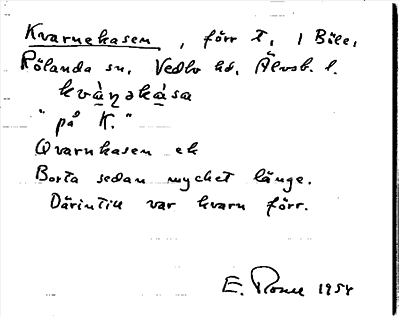 Kvarnekasen, förr T, 1 Böle,
Rölanda sn, Vedbo hd, Älvsb. l.
kvàṇəkàsa
"på K."
Qvarnkasen ek
Borta sedan mycket länge.
Därintill var kvarn förr.
E. 1954